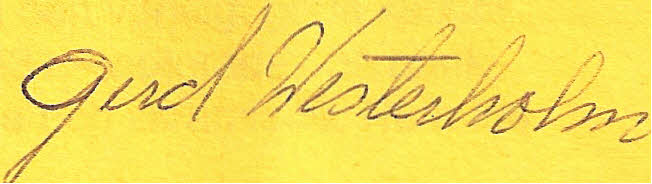 Gerd Westerholm